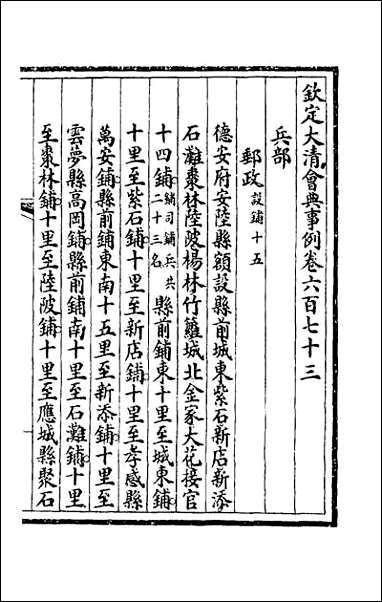 欽定大清會典事例卷六百七十三
兵部
郵政設鋪十五
德安府安陸縣額設縣前城東紫石新店新添
石灘棗林陸陂楊林竹簍城北金家大花接官
十四鋪鋪司鋪兵共二十三名縣前鋪東十里至城東鋪
十里至紫石鋪十里至新店鋪十里至孝感縣
萬安鋪縣前鋪東南十五里至新添鋪十里至
雲夢縣高岡鋪縣前鋪南十里至石灘鋪十里
至棗林鋪十里至陸陂鋪十里至應城縣聚石